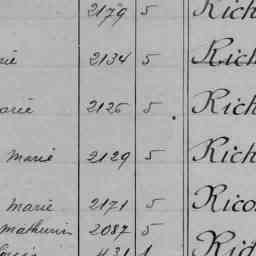 2179 5 Rich
2134 5 Rich
2126 5 Rich
Marie 2129 5 Rich
Marie 2171 5 Rico
Mathurin 2087 5
431 1 Rid